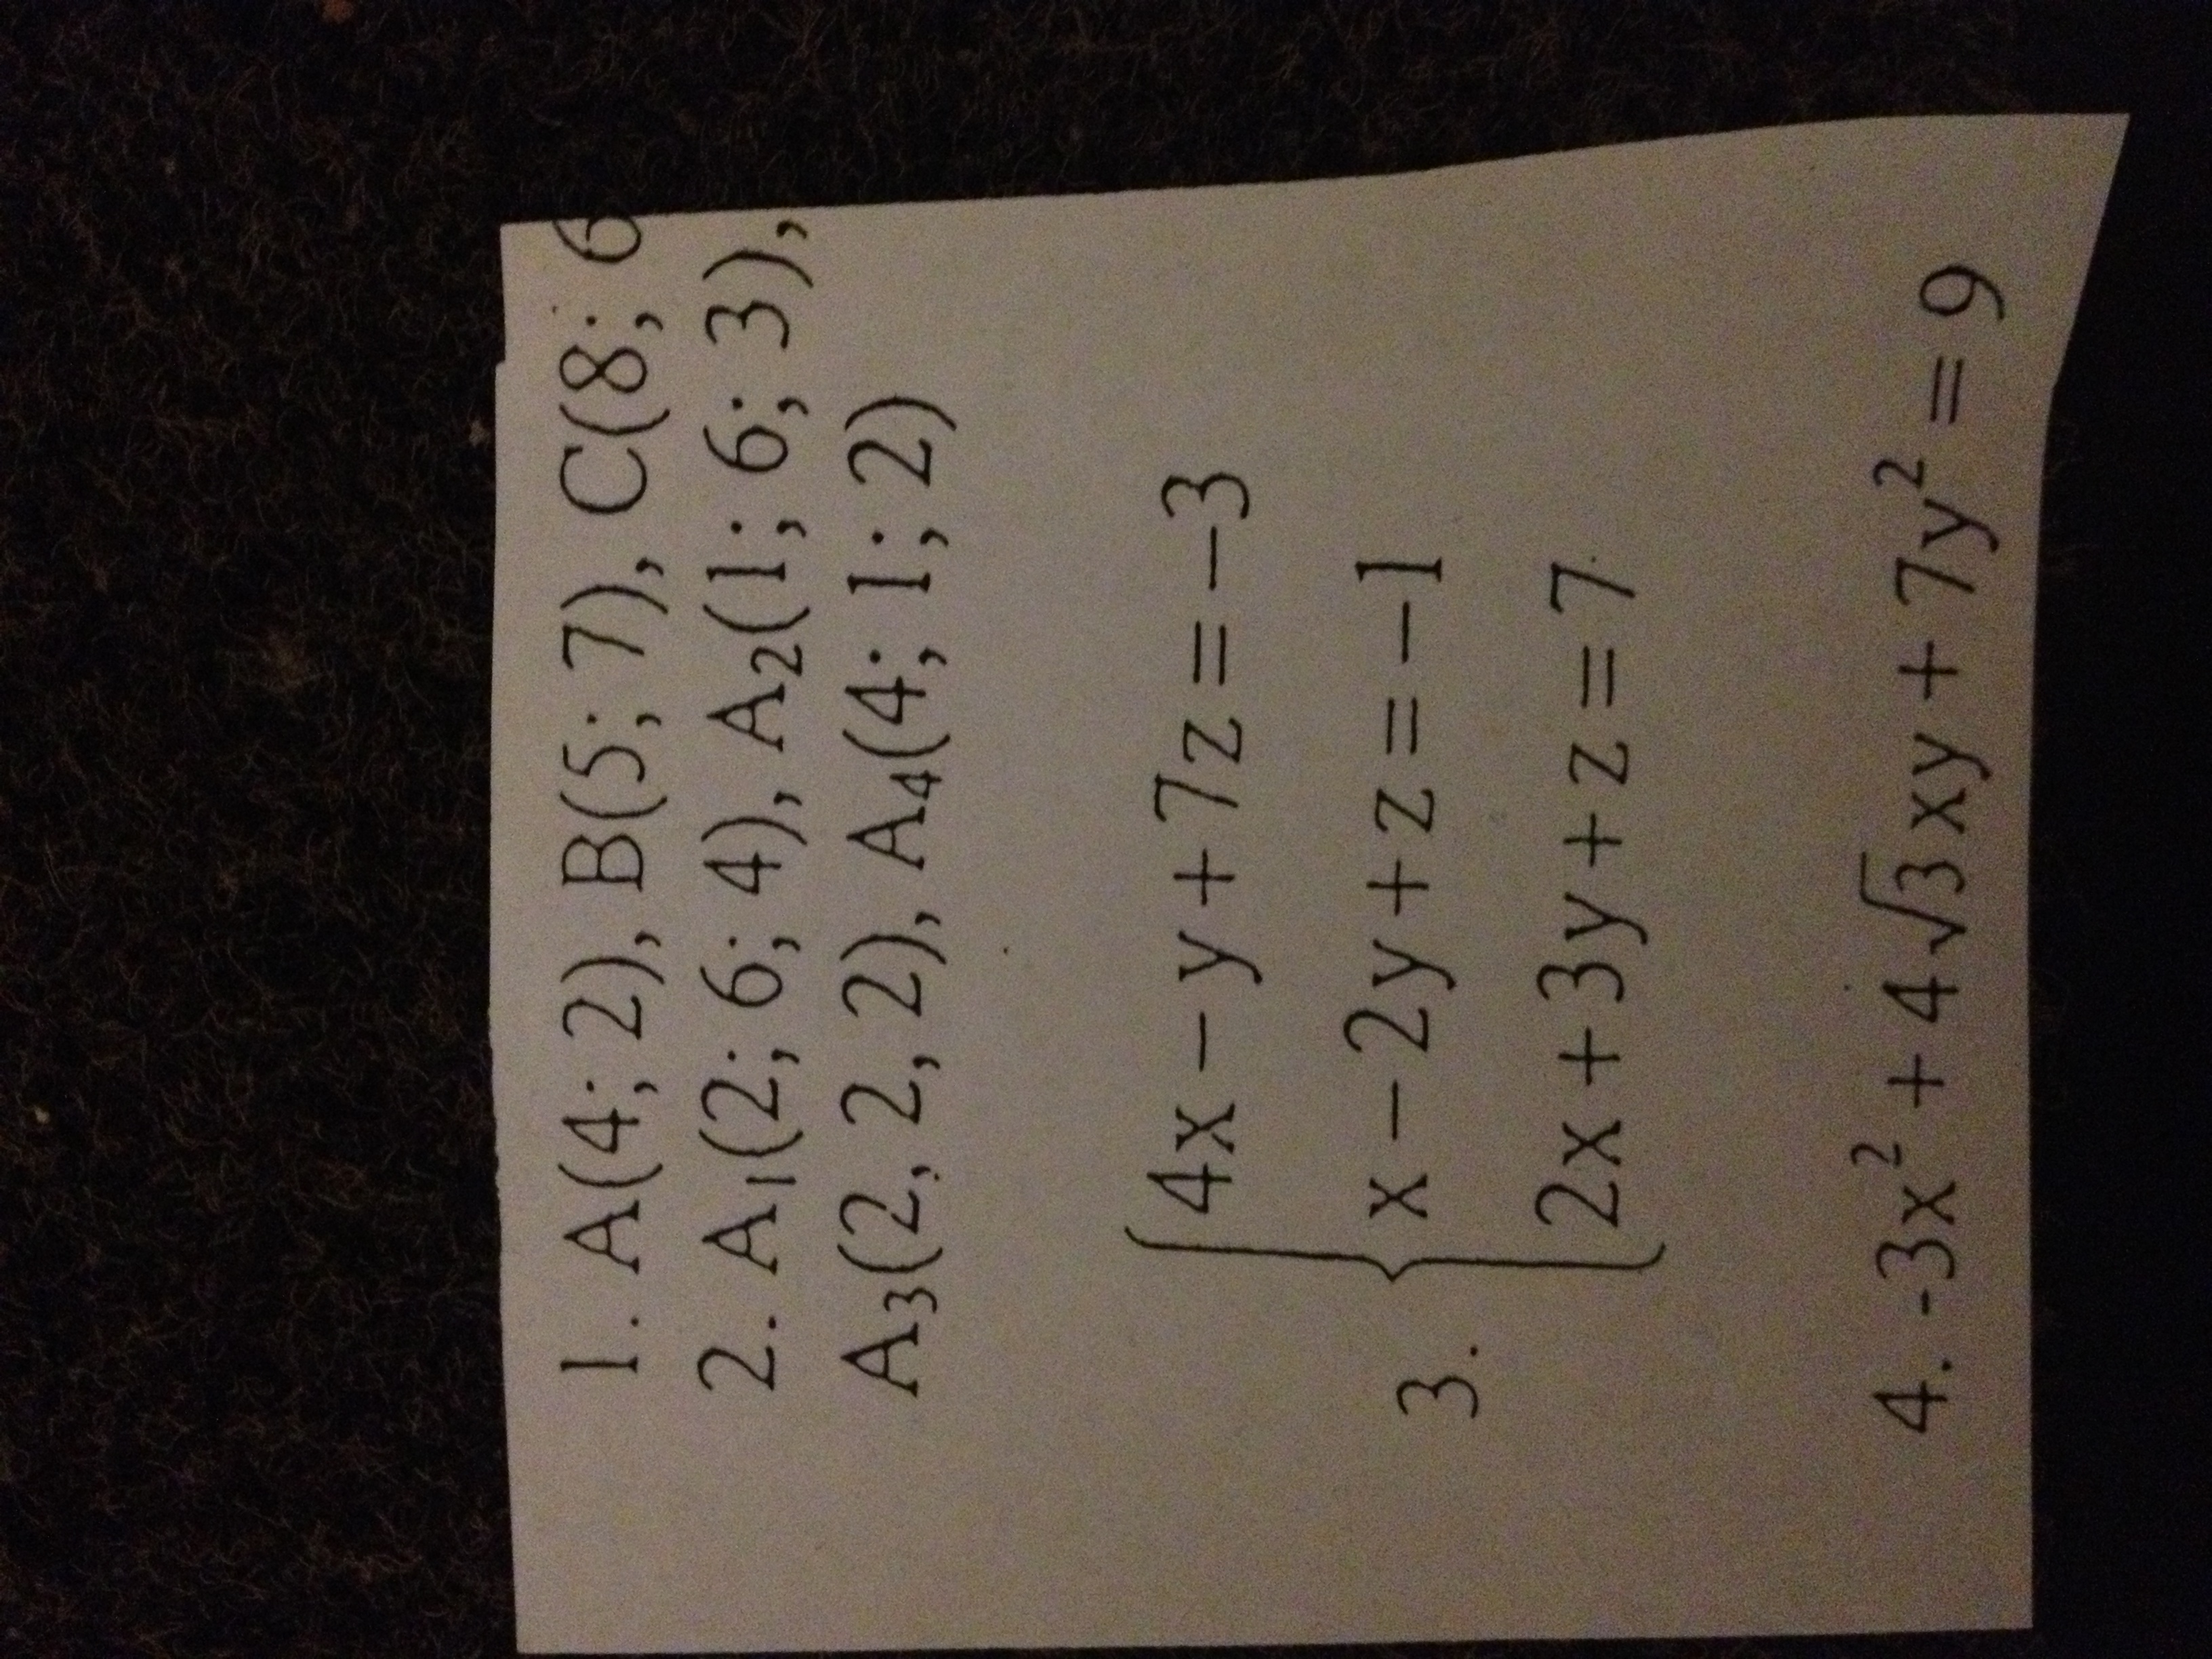 1. A(4; 2), B(5; 7), C(8; 6
2. A₁(2; 6; 4), A₂(1; 6; 3),
A₃(2, 2, 2), A₄(4; 1; 2)
4x − y + 7z = −3
3. { x − 2y + z = −1
2x + 3y + z = 7
4. -3x² + 4√3 xy + 7y² = 9